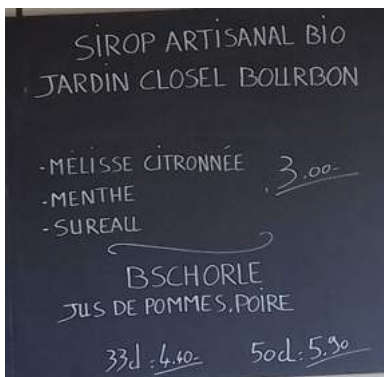 SIROP ARTISANAL BIO
JARDIN CLOSEL BOURBON
-MÉLISSE CITRONNÉE 3.00-
-MENTHE
-SUREAU
BSCHORLE
JUS DE POMMES, POIRE
33d : 4.40- 50cl : 5.90